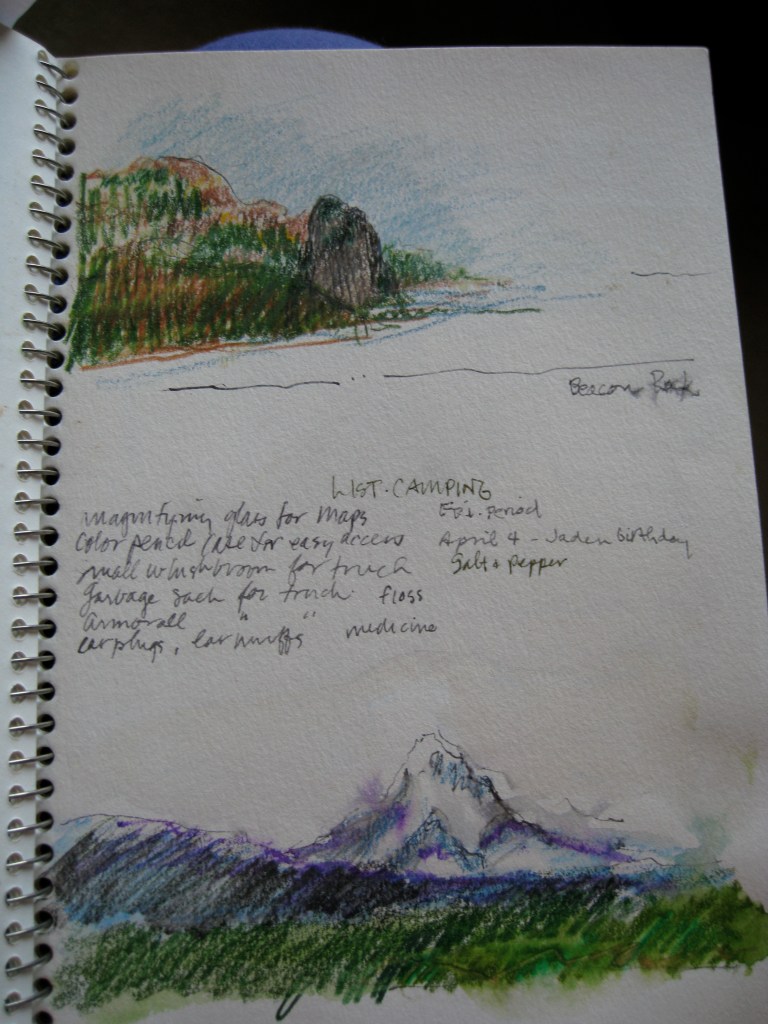 Beacon Rock
LIST-CAMPING
magnifying glass for maps
color pencil case for easy access
small whiskbroom for truck
garbage sack for truck. floss
armorall " "
earplugs, ear muffs medicine
Period
April 4 - Jaden birthday
Salt & pepper